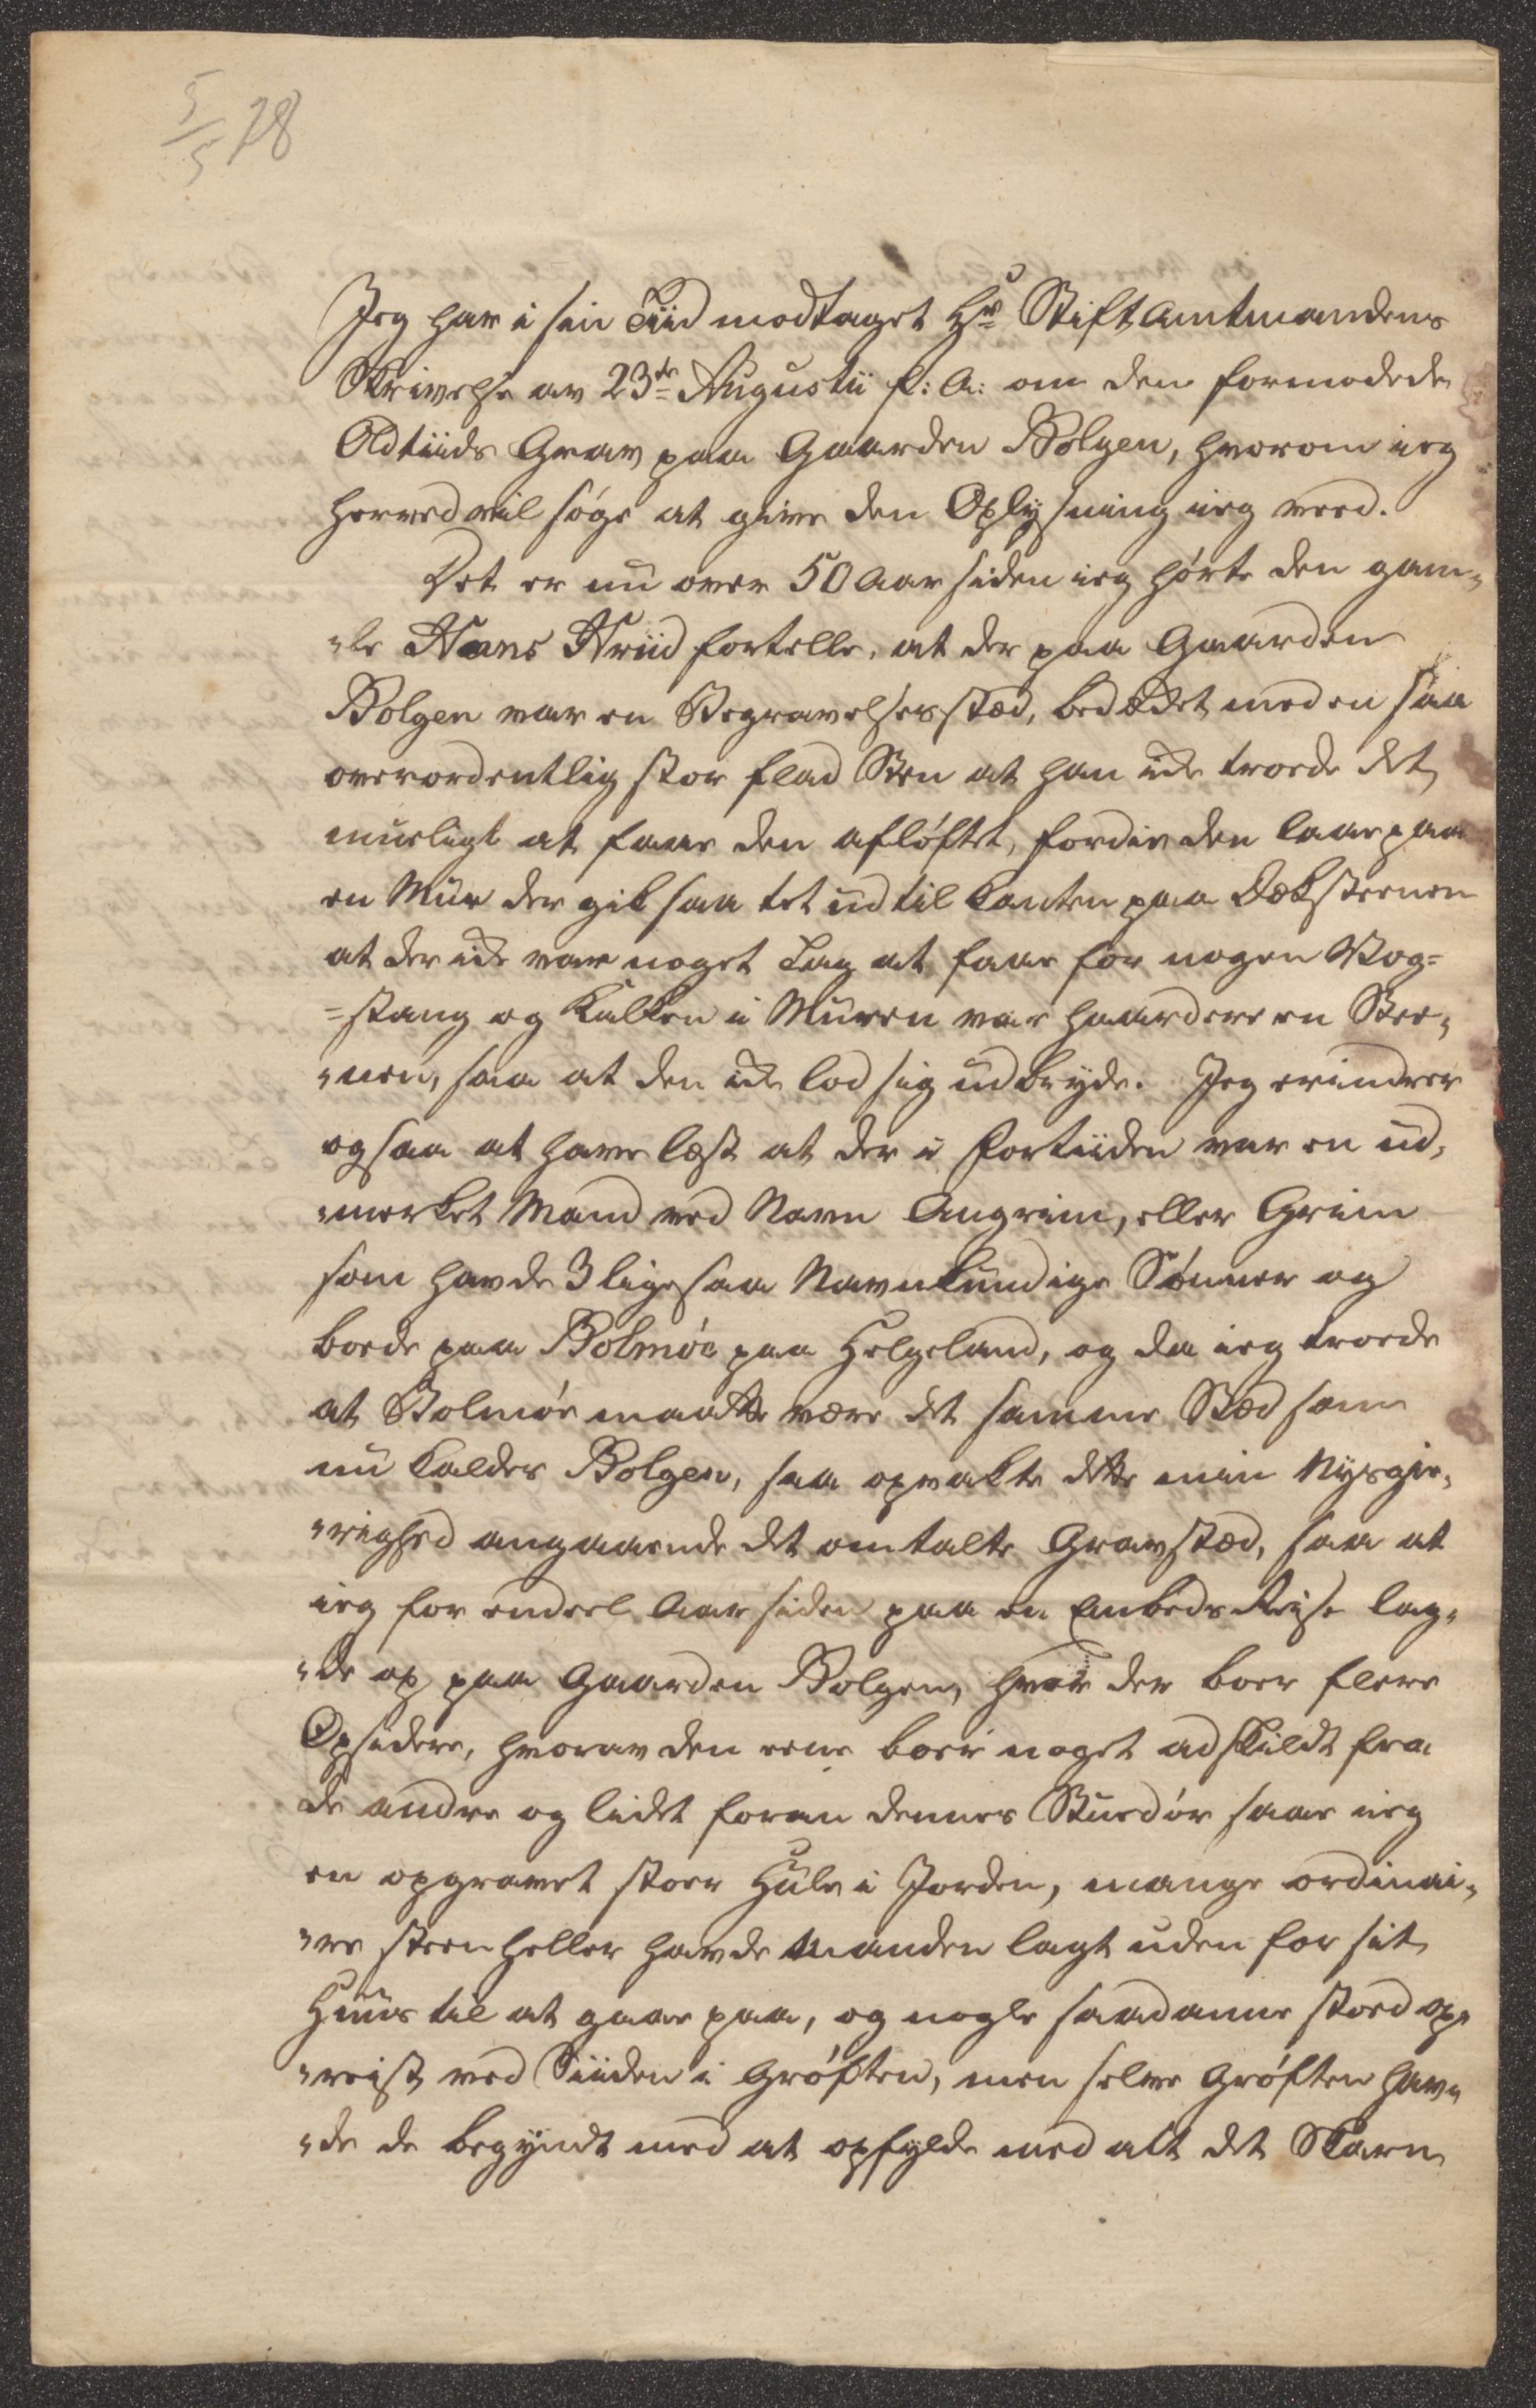 5/5 78
Jeg har i sin Tiid modtaget Hr Stiftamtmandens
Skrivelse av 23de Augustii f: A: om den formodede
Oldtiids Grav paa Gaarden Bolgen, hvorom ieg
herved vil søge at give den Oplysning ieg veed.
Det er nu over 50 Aar siden ieg hørte den gam„
„le Hans Friid fortelle, at der paa Gaarden
Bolgen var en Begravelsesstæd, bedækket med en saa
overordentlig stor flad Sten at han icke troede det
mueligt at faae den afløftet, fordie den laae paa
en Muur der gik saa tet ud til Kanten paa Dæksteenen
at der icke var noget Tag at faae for nogen Vog=
=stang og Kalken i Muren var haardere en Stee„
„nen, saa at den icke lod sig udbryde. Jeg erindrer
ogsaa at have læst at der i Fortiiden var en ud„
„merket Mand ved Navn Angrim, eller Grim
som havde 3 ligesaa Navnkundige Sønner og
boede paa Bolmøe paa Helgeland, og da ieg troede
at Bolmøe maatte være det samme Stæd som
nu kaldes Bolgen, saa opvakte dette min Nysgier„
„righed angaaende det omtalte Gravstæd, saa at
ieg for endeel Aar siden paa en Embeds Reise lag„
„de op paa Gaarden Bolgen, hvor der boer flere
Opsidere, hvorav den eene boer noget adskildt fra
de andre og lidet foran dennes Stuedør saae ieg
en opgravet stoer Hule i Jorden, mange ordinai„
„re steenheller havde Manden lagt uden for sit
Huus til at gaae paa, og nogle saadanne stoed op„
„reist ved Siiden i Grøften, men selve Grøften hav„
„de de begyndt med at opfylde med alt det Skarn